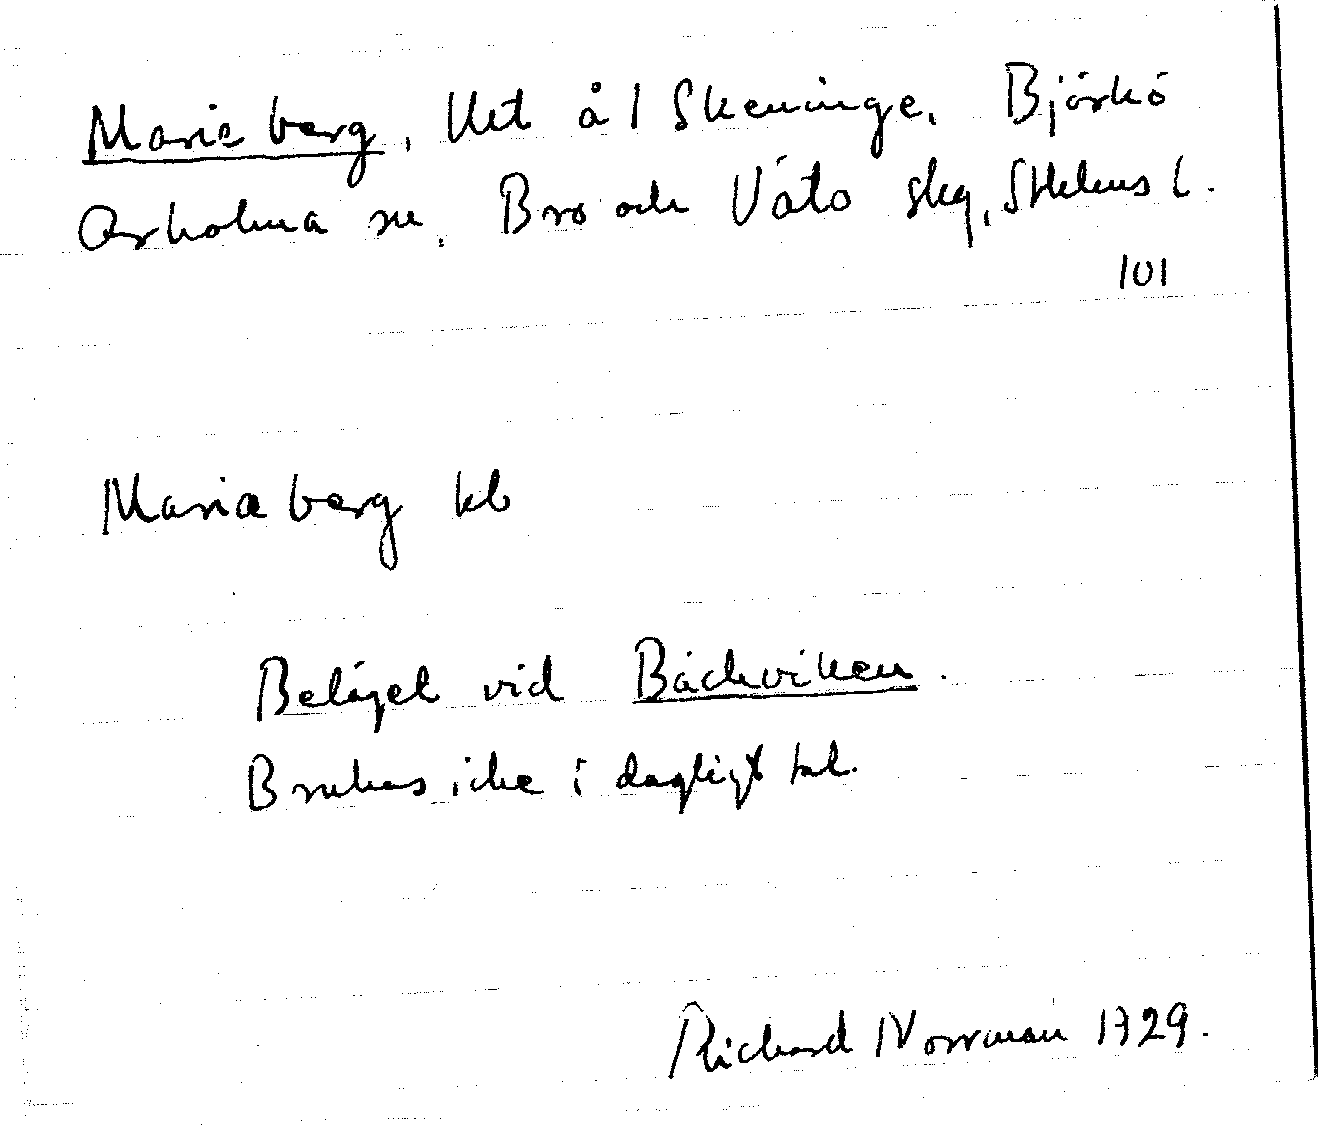 Marieberg, lht å 1 Skeninge, Björkö
Arholma sn, Bro och Vätö skg, Sthlms l.
101
Mariaberg lb
Beläget vid Bäckviken.
Brukas icke i dagligt tal.
Richard Norrman 1729.